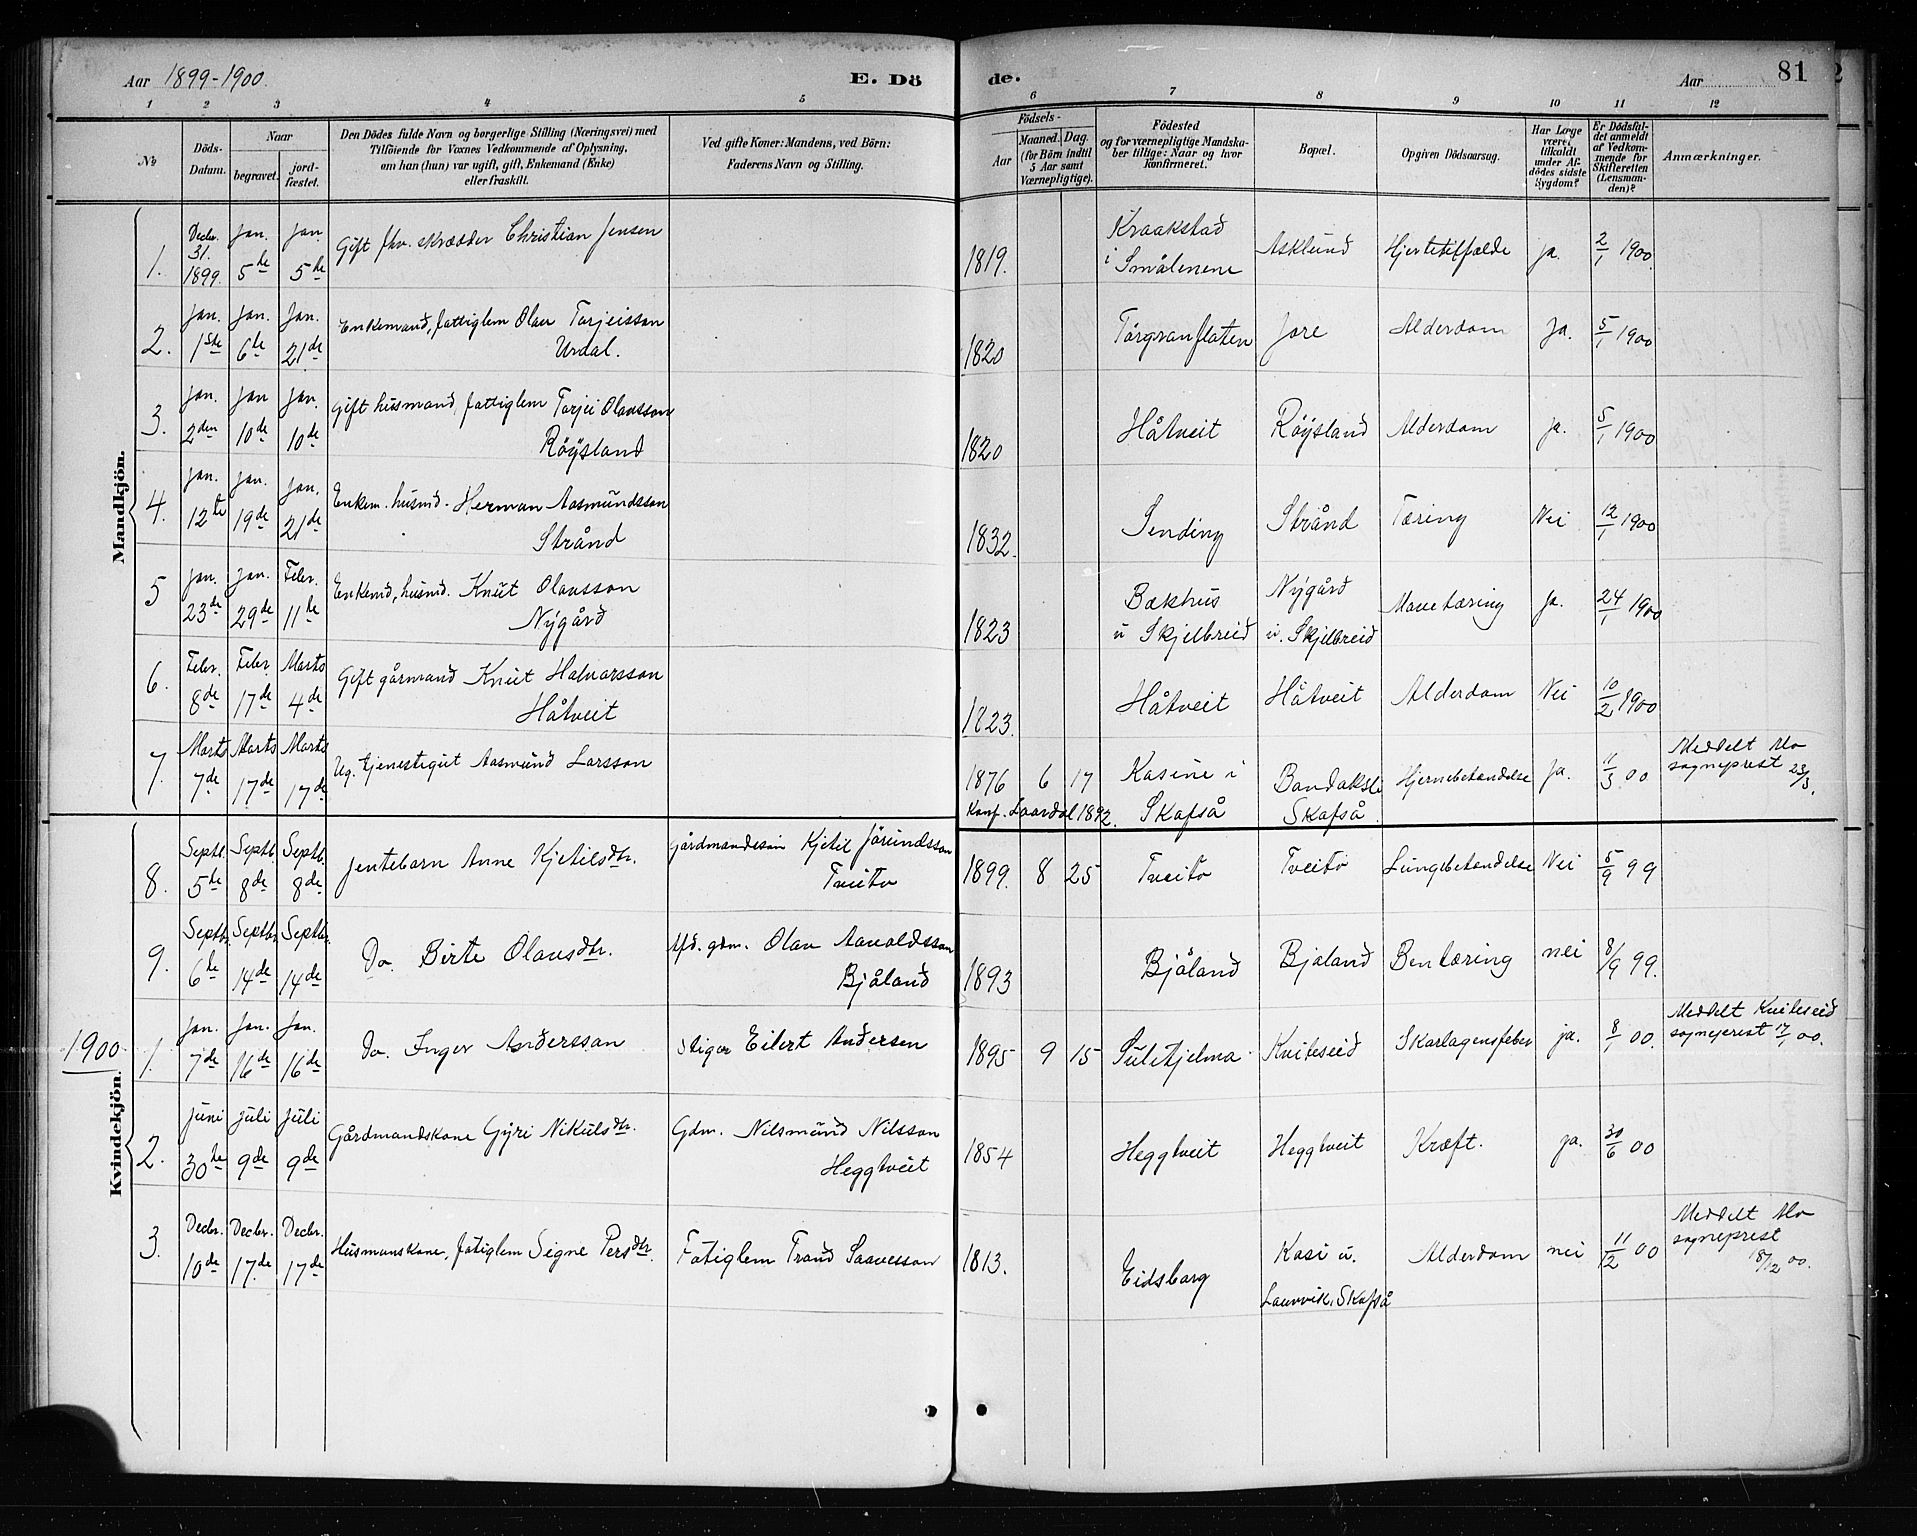 Aar 1899-1900.
E. Dö de.
Aar 81
1 2 3 4 5 6 7 8 9 10 11 12
No
Döds-Datum.
Naar
begravet.
jord-fæstet.
Den Dödes fulde Navn og borgerlige Stilling (Næringsvei) med
Tilföiende for Voxnes Vedkommende af Oplysning,
om han (hun) var ugift, gift, Enkemand (Enke)
eller fraskilt.
Ved gifte Koner: Mandens, ved Börn:
Faderens Navn og Stilling.
Födsels-
Aar
Maaned. Dag.
(for Börn indtil
5 Aar samt
Værnepligtige).
Födested
og for værnepligtige Mandska-
ber tillige: Naar og hvor
konfirmeret.
Bopæl.
Opgiven Dödsaarsag.
Har Læge
været
tilkaldt
under Af-
dödes sidste
Sygdom?
Er Dödsfal-
det anmeldt
af Vedkom-
mende for
Skifteretten
(Lensman-
den)?
Anmærkninger.
Mandkjön.
1. Decbr. 31. 1899. Jan. 5te Jan. 5te Gift fhv. skrædder Christian Jensen 1819. Kraakstad i Smålenene Asklund Hjertetilfælde ja. 2/1 1900.
2. Jan. 1ste Jan. 6te Jan. 21de Enkemand, fattiglem Olav Torjeisson Urdal. 1820 Jore Alderdom Ja. 5/1 1900
3. Jan. 2den Jan 10de Jan. 10de Gift husmand, fattiglem Torjei Olavsson Röysland 1820 Håtveit Röysland Alderdom ja. 5/1 1900
4. Jan. 12te Jan. 19de Jan. 21de Enkem. husmd. Herman Aasmundsson Strånd 1832. Sending Strånd Tæring Nei 12/1 1900
5 Jan. 23de Jan. 29de Febr. 11te Enkemd, husmd. Knut Olavsson Nygård 1823 Bakhus u Skjelbreid Nygård u. Skjelbreid Mavetæring Ja. 24/1 1900
6. Febr. 8de Febr 17de Marts 4de Gift gårmand Knut Halvorsson Håtveit 1823. Håtveit Håtveit Alderdom Nei 10/2 1900
7. Marts 7de Marts 17de Marts 17de Ug. tjenestegut Aasmund Larsson 1876 6 17 Konf. Laardal 1892. Kasine i Skafså Bandaksli Skafså. Hjernebetændelse Ja. 11/3 00 Meddelt Mo sogneprest 23/3.
Kvindekjön.
8. Septb. 5te Septb. 8de Septb. 8de Jentebarn Anne Kjetilsdtr. Gårdmandssön Kjetil Jörundsson Tveito 1899. 8 25 Tveito Tveito Lungebetændelse Nei 5/9 99
9. Septbr. 6te Septbr. 14de Septbr. 14de Do. Birte Olavsdtr. Afd. gdm. Olav Aavaldsson Bjåland 1893 Bjåland Bjåland Bentæring nei 8/9 99.
1900.
1. Jan. 7de Jan. 16de Jan. 16de Do. Inger Anderssan Stiger Eilert Andersen 1895 9 15 Sulitjelma Kviteseid Skarlagensfeber ja. 8/1 00. Meddelt Kviteseid sogneprest 17/1 00.
2. Juni 30te Juli 9de Juli 9de Gårdmandskone Gyri Nikulsdtr. Gdm. Nilsmund Nilsson Heggtveit 1854 Heggtveit Heggtveit Kræft. ja. 30/6 00
3. Decbr. 10de Decbr. 17de Decbr. 17de Husmanskone, fatiglem Signe Persdtr. Fatiglem Trond Saavesson 1813. Eidsborg Kasi u. Laurvik, Skafså Alderdom nei 11/12 00 Meddelt Mo sogneprest 18/12 00.